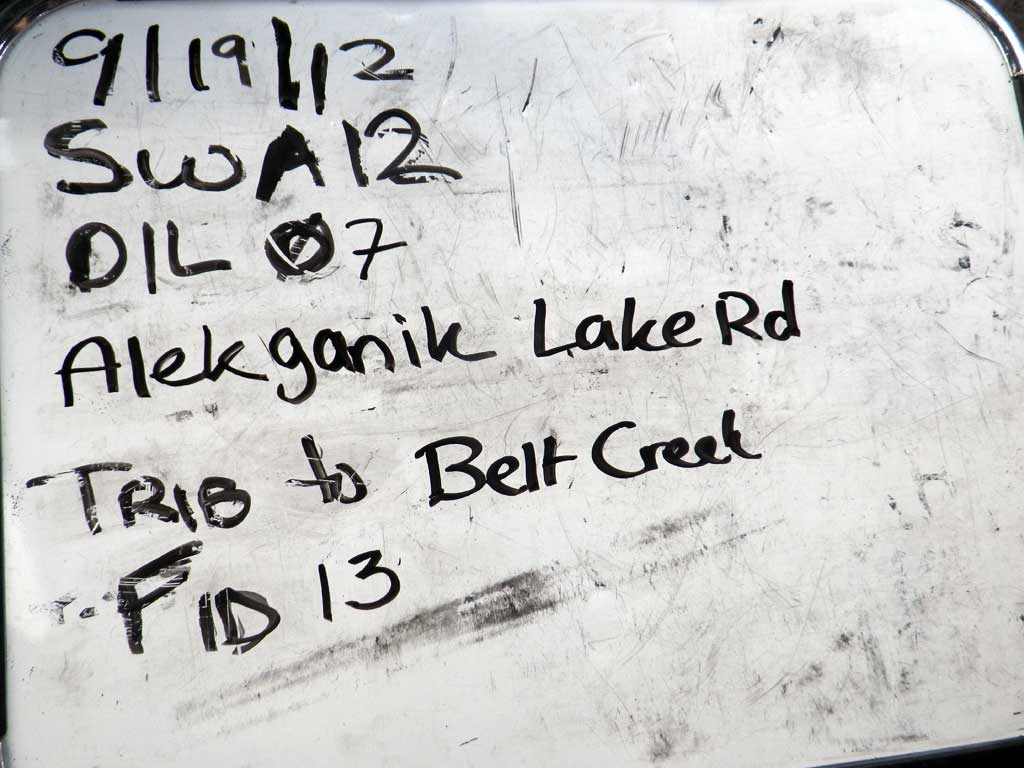 9/19/12
SWA12
DIL 07
Alekganik Lake Rd
TRIB to Belt Creek
FID 13